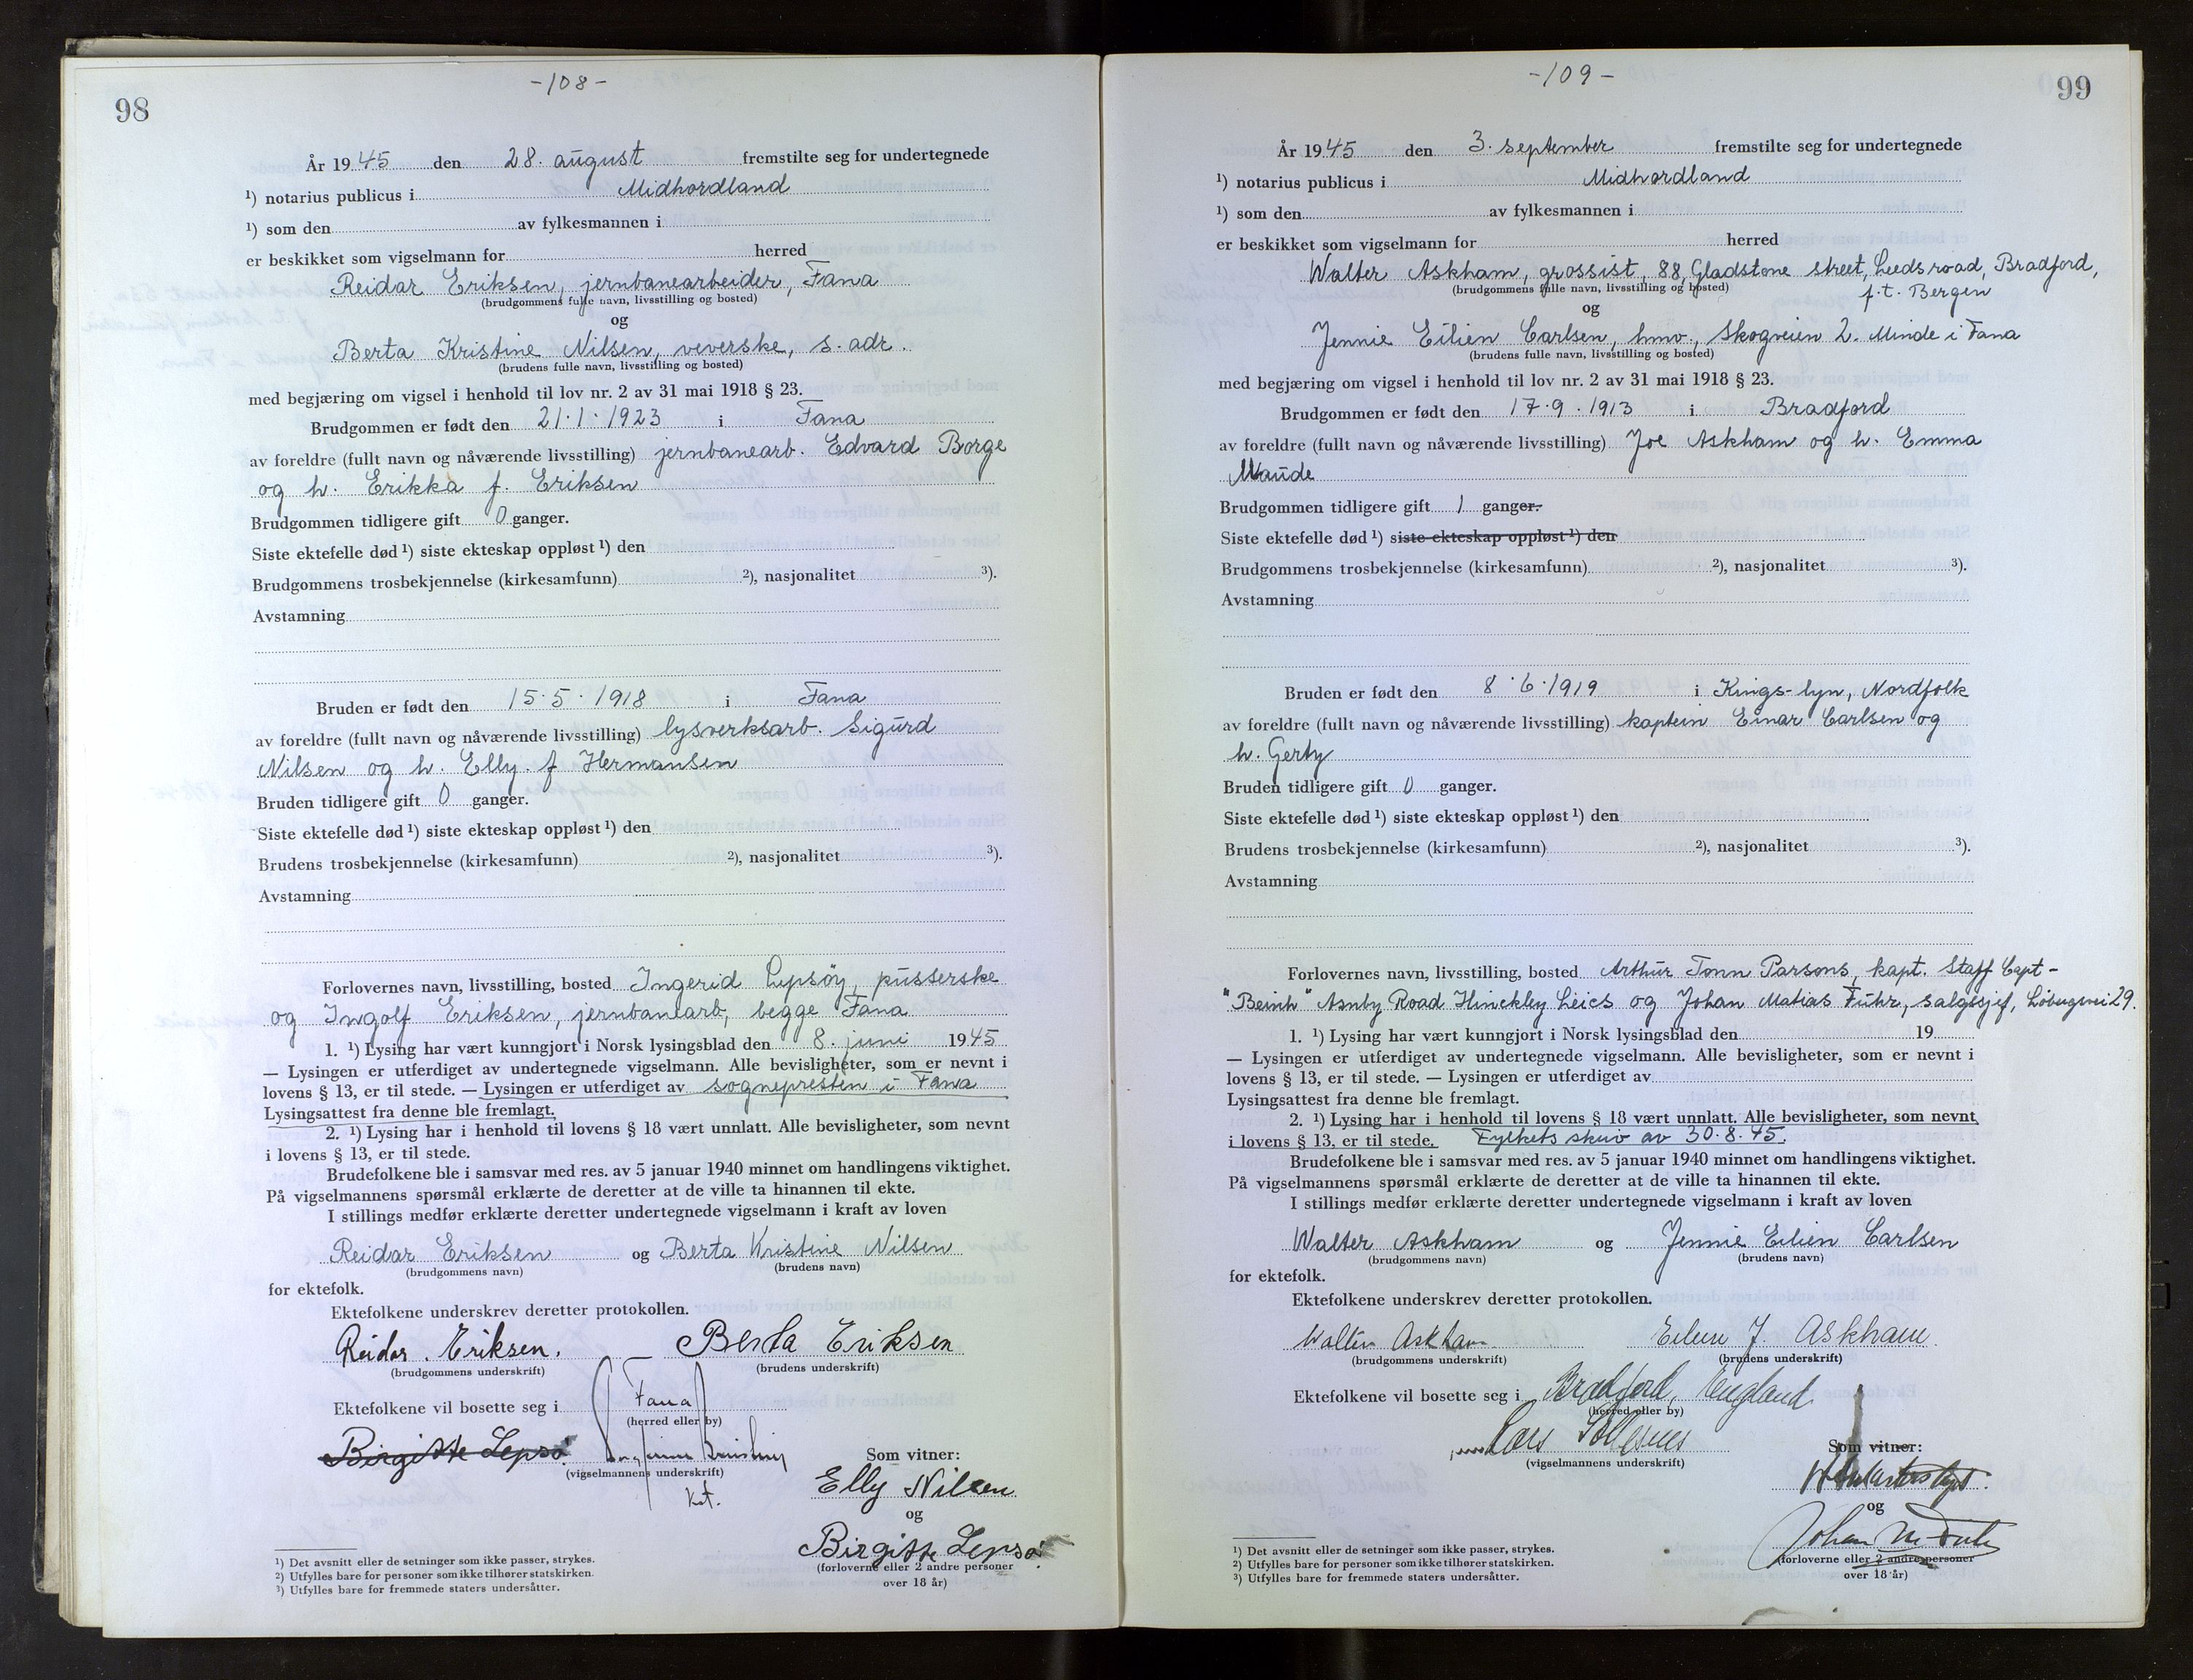 98
-108-
År 1945 den 28. august fremstilte seg for undertegnede
¹) notarius publicus i Midhordland
¹) som den av fylkesmannen i
er beskikket som vigselmann for herred
Reidar Eriksen, jernbanearbeider, Fana
(brudgommens fulle navn, livsstilling og bosted)
og
Berta Kristine Nilsen, veverske, s. adr.
(brudens fulle navn, livsstilling og bosted)
med begjæring om vigsel i henhold til lov nr. 2 av 31 mai 1918 § 23.
Brudgommen er født den 21.1.1923 i Fana
av foreldre (fullt navn og nåværende livsstilling) jernbanearb. Edvard Borge
og h. Erikka f. Eriksen
Brudgommen tidligere gift 0 ganger.
Siste ektefelle død ¹) siste ekteskap oppløst ¹) den
Brudgommens trosbekjennelse (kirkesamfunn) ²), nasjonalitet ³).
Avstamning
Bruden er født den 15.5.1918 i Fana
av foreldre (fullt navn og nåværende livsstilling) lysverksarb. Sigurd
Nilsen og h. Elly f Hermansen
Bruden tidligere gift 0 ganger.
Siste ektefelle død ¹) siste ekteskap oppløst ¹) den
Brudens trosbekjennelse (kirkesamfunn) ²), nasjonalitet ³).
Avstamning
Forlovernes navn, livsstilling, bosted Ingerid Lepsöy, pusserske
og Ingolf Eriksen, jernbanearb, begge Fana
1. ¹) Lysing har vært kunngjort i Norsk lysingsblad den 8. juni 1945
— Lysingen er utferdiget av undertegnede vigselmann. Alle bevisligheter, som er nevnt i
lovens § 13, er til stede. — Lysingen er utferdiget av sognepresten i Fana
Lysingsattest fra denne ble fremlagt.
2. ¹) Lysing har i henhold til lovens § 18 vært unnlatt. Alle bevisligheter, som nevnt
i lovens § 13, er til stede.
Brudefolkene ble i samsvar med res. av 5 januar 1940 minnet om handlingens viktighet.
På vigselmannens spørsmål erklærte de deretter at de ville ta hinannen til ekte.
I stillings medfør erklærte deretter undertegnede vigselmann i kraft av loven
Reidar Eriksen og Berta Kristine Nilsen
(brudgommens navn) (brudens navn)
for ektefolk.
Ektefolkene underskrev deretter protokollen.
Reidar Eriksen. Berta Eriksen
(brudgommens underskrift) (brudens underskrift)
Ektefolkene vil bosette seg i Fana
(herred eller by)
Birgitte Lepsø
(vigselmannens underskrift)
Som vitner:
Elly Nilsen
og
Birgitte Lepsø
(forloverne eller 2 andre personer
over 18 år)
¹) Det avsnitt eller de setninger som ikke passer, strykes.
²) Utfylles bare for personer som ikke tilhører statskirken.
³) Utfylles bare for fremmede staters undersåtter.
-109-
99
År 1945 den 3. september fremstilte seg for undertegnede
¹) notarius publicus i Midhordland
¹) som den av fylkesmannen i
er beskikket som vigselmann for herred
Walter Askham, grossist, 88, Gladstone street, Leeds road, Bradford,
(brudgommens fulle navn, livsstilling og bosted) f.t. Bergen
og
Jennie Eilien Carlsen, hmv., Skogveien 2. Minde i Fana
(brudens fulle navn, livsstilling og bosted)
med begjæring om vigsel i henhold til lov nr. 2 av 31 mai 1918 § 23.
Brudgommen er født den 17.9.1913 i Bradford
av foreldre (fullt navn og nåværende livsstilling) Joe Askham og h. Emma
Maude
Brudgommen tidligere gift 1 ganger.
Siste ektefelle død ¹) siste ekteskap oppløst ¹) den
Brudgommens trosbekjennelse (kirkesamfunn) ²), nasjonalitet ³).
Avstamning
Bruden er født den 8.6.1919 i Kings-lyn, Nordfolk
av foreldre (fullt navn og nåværende livsstilling) kaptein Einar Carlsen og
h. Gerty
Bruden tidligere gift 0 ganger.
Siste ektefelle død ¹) siste ekteskap oppløst ¹) den
Brudens trosbekjennelse (kirkesamfunn) ²), nasjonalitet ³).
Avstamning
Forlovernes navn, livsstilling, bosted Arthur Tonn Parsons, kapt. Staff Capt-
Road Hinckley Leics og Johan Matias Fuhr, salgssjef, 29.
1. ¹) Lysing har vært kunngjort i Norsk lysingsblad den 19
— Lysingen er utferdiget av undertegnede vigselmann. Alle bevisligheter, som er nevnt i
lovens § 13, er til stede. — Lysingen er utferdiget av
Lysingsattest fra denne ble fremlagt.
2. ¹) Lysing har i henhold til lovens § 18 vært unnlatt. Alle bevisligheter, som nevnt
i lovens § 13, er til stede. Fylkets skriv av 30.8.45.
Brudefolkene ble i samsvar med res. av 5 januar 1940 minnet om handlingens viktighet.
På vigselmannens spørsmål erklærte de deretter at de ville ta hinannen til ekte.
I stillings medfør erklærte deretter undertegnede vigselmann i kraft av loven
Walter Askham og Jennie Eilien Carlsen
(brudgommens navn) (brudens navn)
for ektefolk.
Ektefolkene underskrev deretter protokollen.
Walter Askham Eileen J. Askham
(brudgommens underskrift) (brudens underskrift)
Ektefolkene vil bosette seg i Bradford, England
(herred eller by)
Lars
(vigselmannens underskrift)
Som vitner:
og
Johan M Fuhr
(forloverne eller 2 andre personer
over 18 år)
¹) Det avsnitt eller de setninger som ikke passer, strykes.
²) Utfylles bare for personer som ikke tilhører statskirken.
³) Utfylles bare for fremmede staters undersåtter.